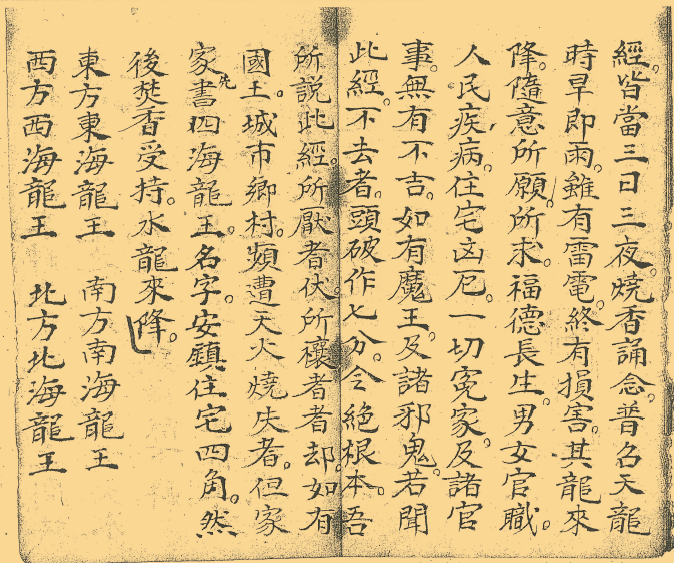 經。皆當三日三夜。燒香誦念。普召天龍
時旱即雨。雖有雷電。終有損害。其龍來
降。隨意所願。所求。福德長生。男女官職。
人民疾病。住宅凶厄。一切冤家。及諸官
事。無有不吉。如有魔王。及諸邪鬼。若聞
此經。不去者。頭破作七分。令絕根本。吾
所說此經。所厭者伏所禳者者却。如有
國王。城市鄉村。頻遭天火燒失者。但家
家先書四海龍王。名字。安鎮住宅四角。然
後焚香受持。水龍來降。
東方東海龍王 南方南海龍王
西方西海龍王 北方北海龍王